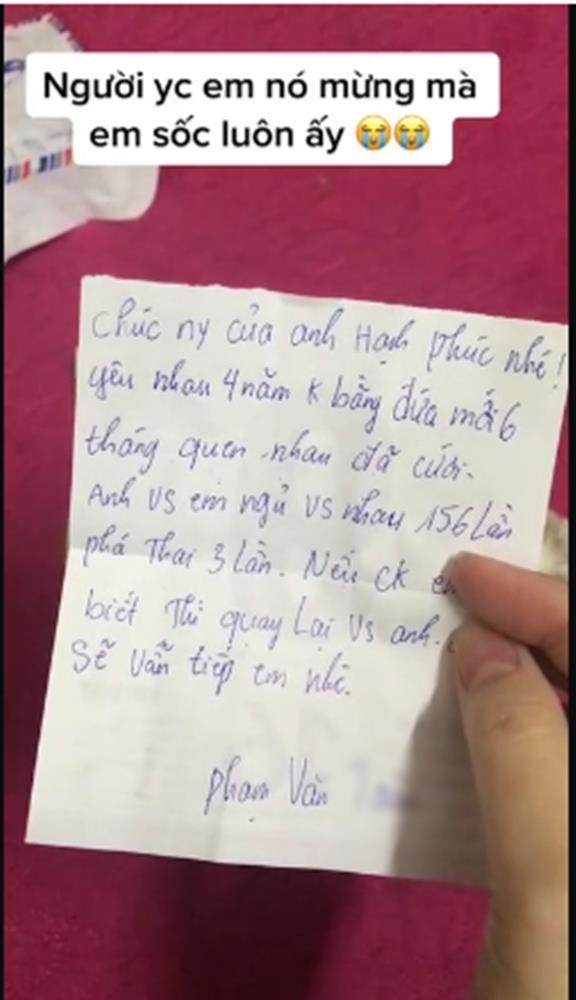 Người yc em nó mừng mà
em sốc luôn ấy 😭😭
Chúc ny của anh Hạnh phúc nhé!
yêu nhau 4 năm K bằng đứa mới 6
tháng quen nhau đã cưới.
Anh VS em ngủ VS nhau 156 Lần
phá Thai 3 Lần. Nếu CK em
biết Thì quay Lại VS anh.
Sẽ vẫn tiếp em nhé.
Phạm Văn